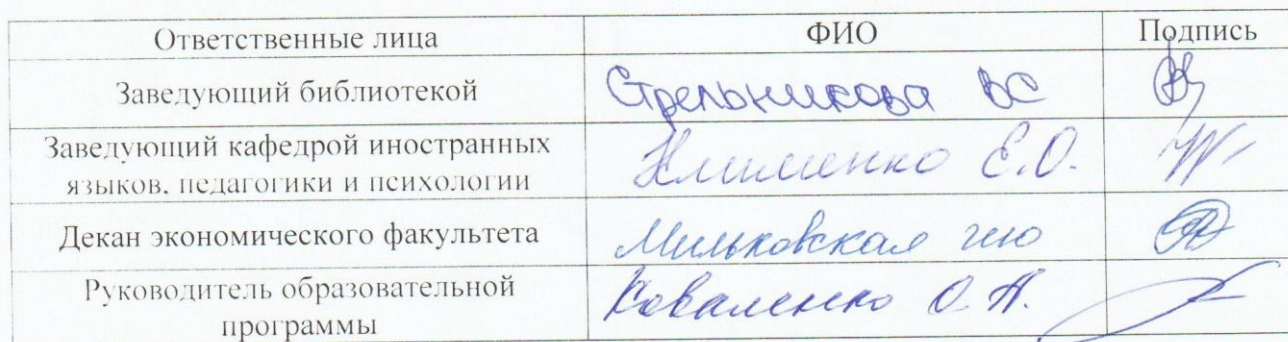 Ответственные лица ФИО Подпись
Заведующий библиотекой Стрельникова ВС
Заведующий кафедрой иностранных
языков, педагогики и психологии Клименко Е.О.
Декан экономического факультета Мильковская
Руководитель образовательной
программы Коваленко О.А.